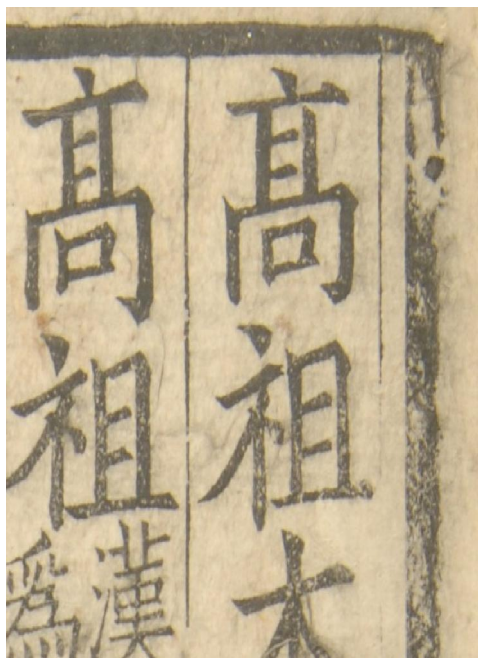 髙祖
髙祖
漢
爲